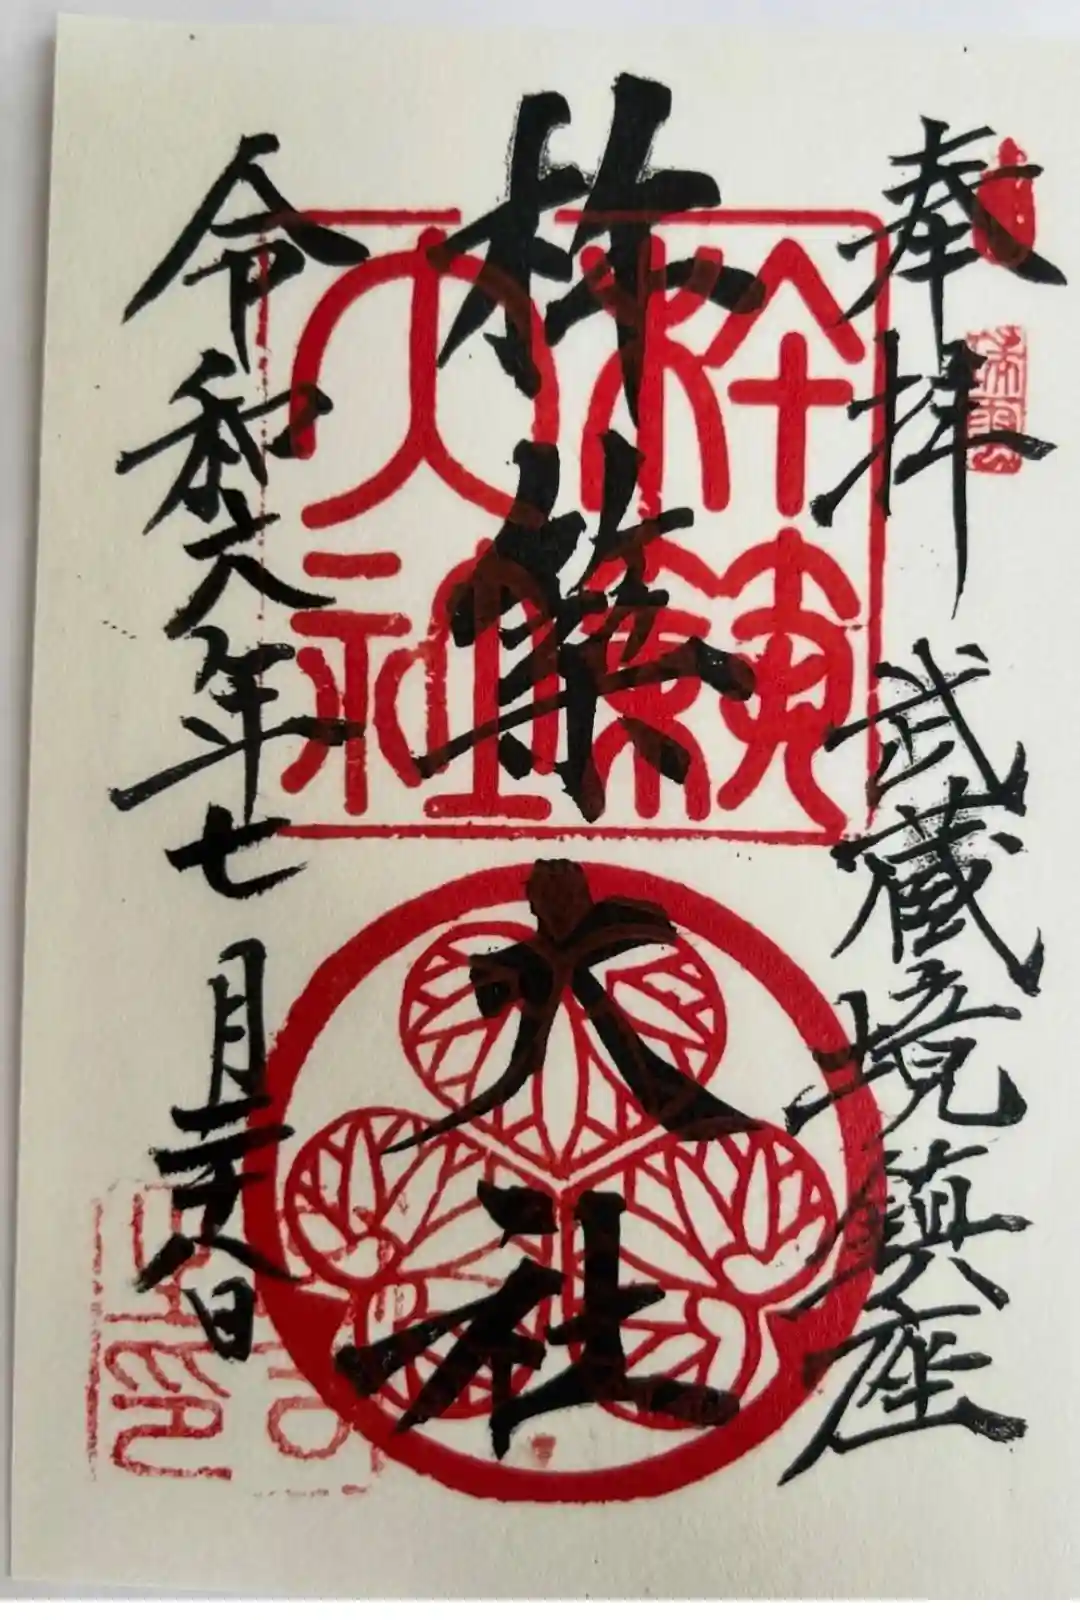 奉拝 武蔵境鎮座
杵築大社
令和六年七月二十八日
杵築
大社